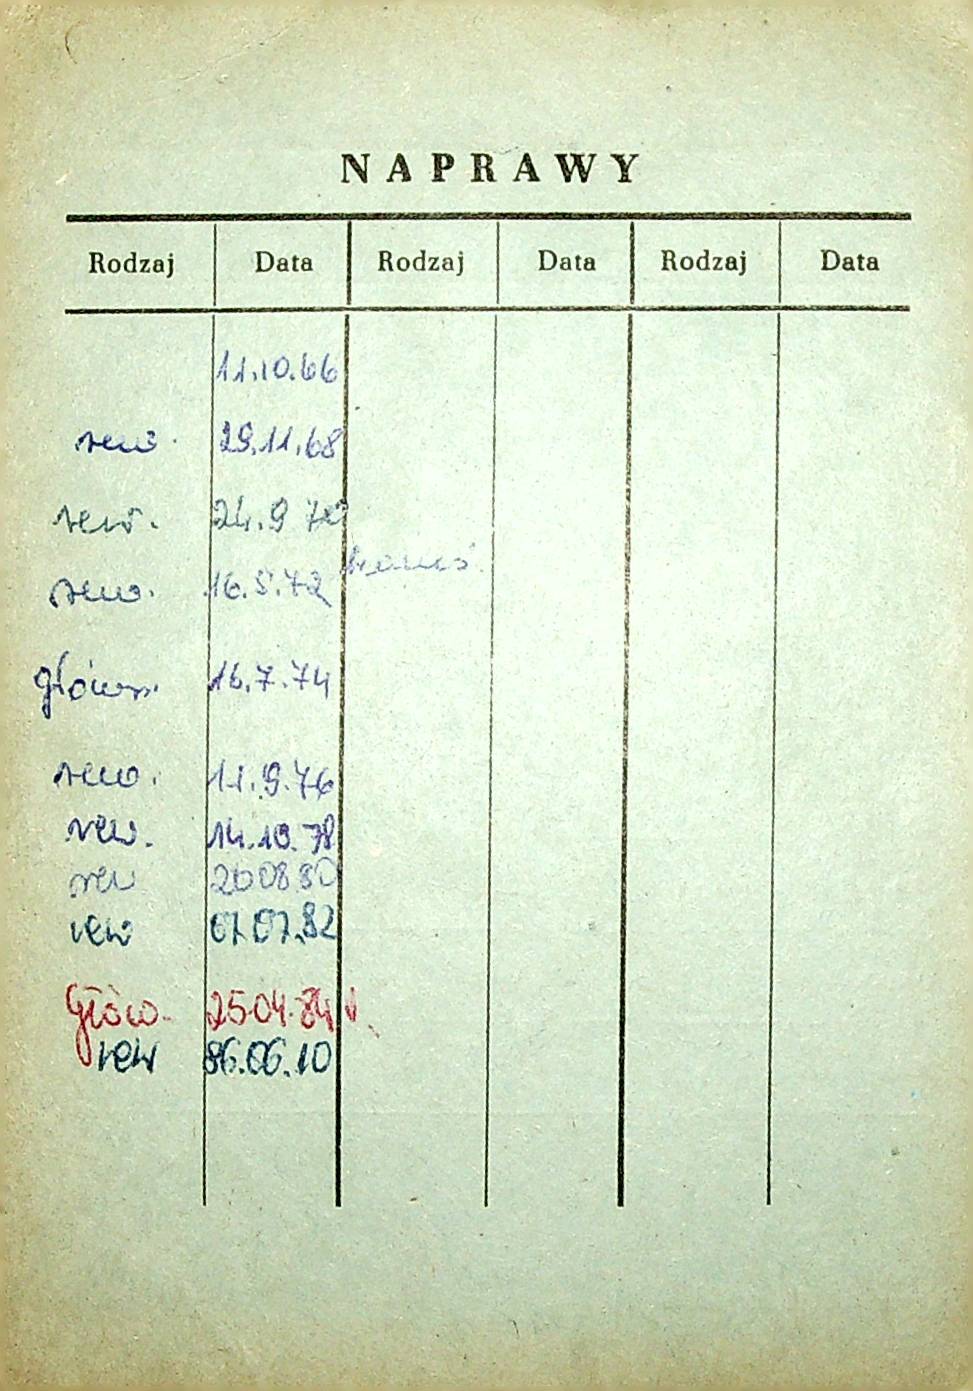 NAPRAWY
Rodzaj Data Rodzaj Data Rodzaj Data
11.10.66
rew. 29.11.68
rew. 24.9 70
rew. 16.5.72
główn. 16.7.74
rew. 11.9.76
rew. 14.10.78
rew 20 08 80
rew 07.07.82
Głów. 25.04.84
rew 86.06.10